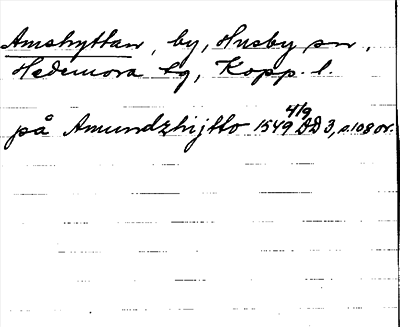 Amshyttan, by, Husby sn,
Hedemora tg, Kopp. l.
4/9
på Amundzhijtto 1549 DD 3, s.108 or.